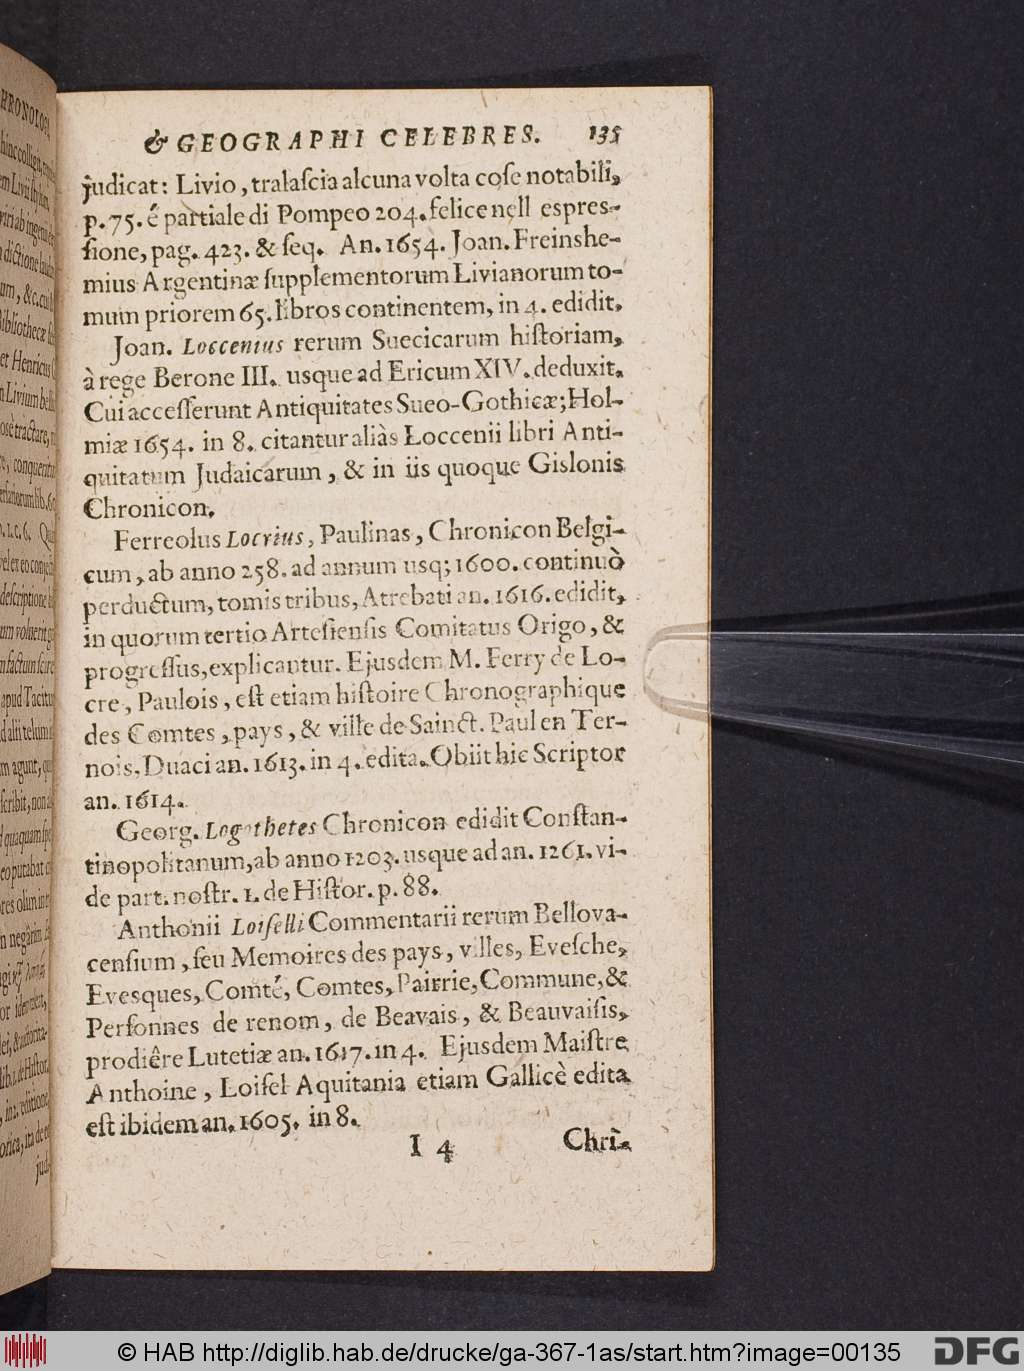 & GEOGRAPHI CELEBRES. 135
judicat: Livio, tralaſcia alcuna volta coſe notabili,
p. 75. é partiale di Pompeo 204. felice nell espreſ-
ſione, pag. 423. & ſeq. An. 1654. Joan. Freinshe-
mius Argentinæ ſupplementorum Livianorum to-
mum priorem 65. libros continentem, in 4. edidit.
Joan. Loccenius rerum Suecicarum hiſtoriam,
à rege Berone III. usque ad Ericum XIV. deduxit.
Cui acceſſerunt Antiquitates Sueo-Gothicæ; Hol-
miæ 1654. in 8. citantur aliàs Loccenii libri Anti-
quitatum Judaicarum, & in iis quoque Gislonis
Chronicon.
Ferreolus Locrius, Paulinas, Chronicon Belgi-
cum, ab anno 258. ad annum usq; 1600. continuò
perductum, tomis tribus, Atrebati an. 1616. edidit,
in quorum tertio Arteſienſis Comitatus Origo, &
progreſſus, explicantur. Ejusdem M. Ferry de Lo-
cre, Paulois, eſt etiam hiſtoire Chronographique
des Comtes, pays, & ville de Sainct. Paul en Ter-
nois. Duaci an. 1613. in 4. edita. Obiit hic Scriptor
an. 1614.
Georg. Logothetes Chronicon edidit Conſtan-
tinopolitanum, ab anno 1203. usque ad an. 1261. vi-
de part. noſtr. 1. de Hiſtor. p. 88.
Anthonii Loiſelli Commentarii rerum Bellova-
cenſium, ſeu Memoires des pays, villes, Eveſche,
Evesques, Comté, Comtes, Pairrie, Commune, &
Perſonnes de renom, de Beavais, & Beauvaiſis,
prodiêre Lutetiæ an. 1617. in 4. Ejusdem Maiſtre
Anthoine, Loiſel Aquitania etiam Gallicè edita
eſt ibidem an. 1605. in 8.
I 4 Chri-
© HAB http://diglib.hab.de/drucke/ga-367-1as/start.htm?image=00135
DFG